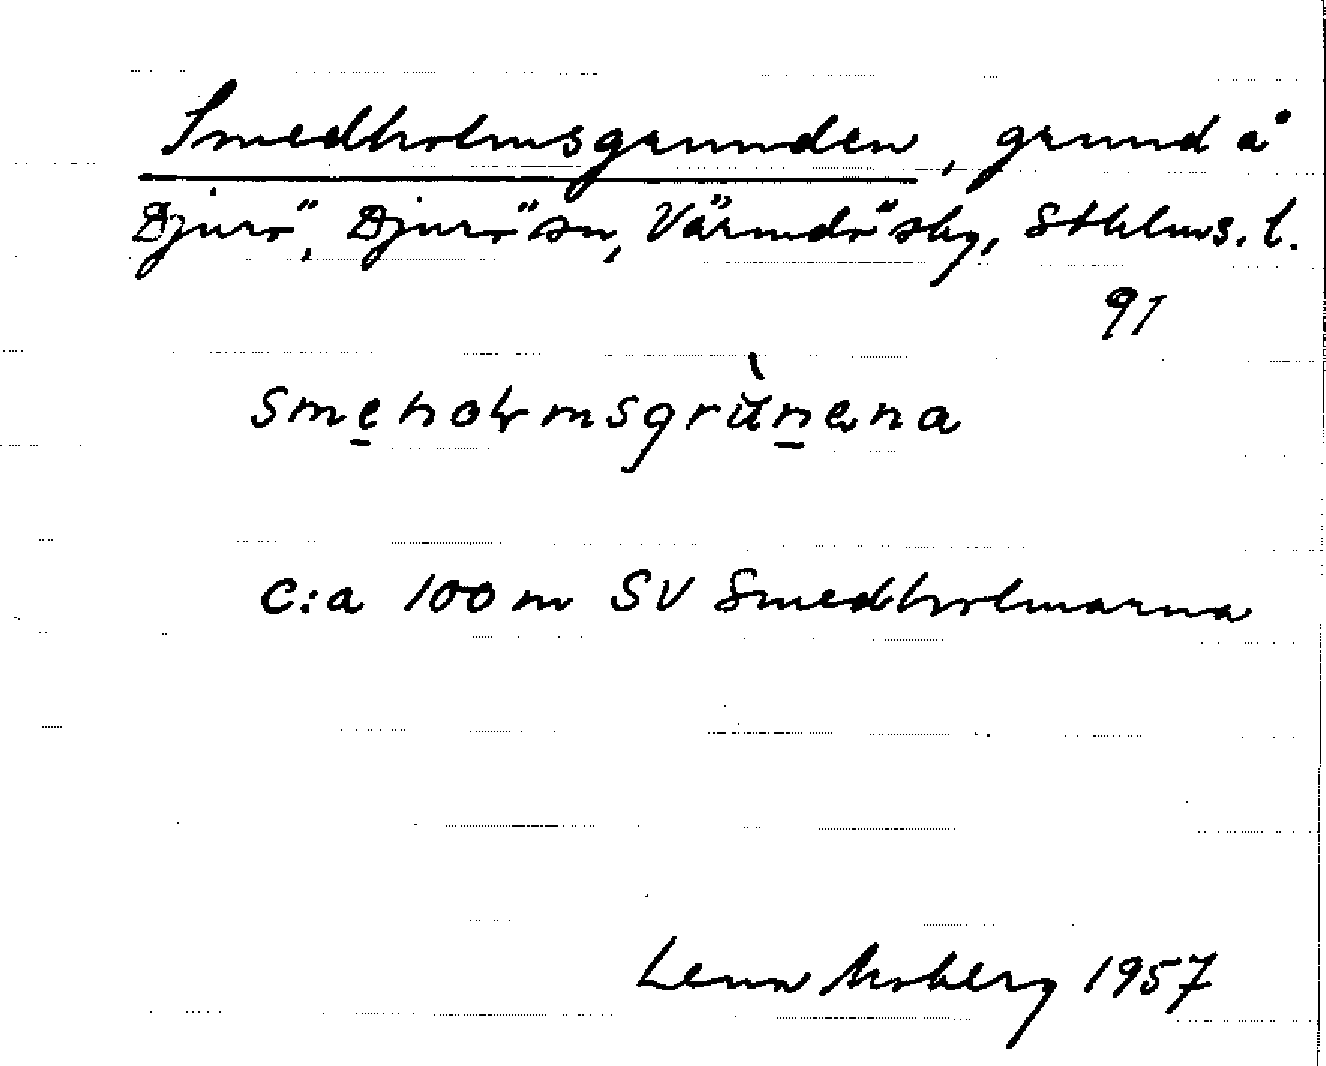 Smedholmsgrunden, grund å
Djurö, Djurö sn, Värmdö sky, Sthlms. l.
91
smeholmsgrùnena
c:a 100 m SV Smedholmarna
Lenn Moberg 1957